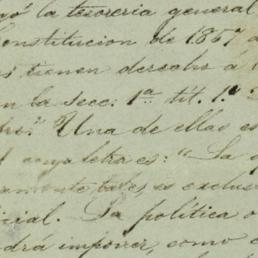 gó la tesoreria general
onstitucion de 1857 a
s tienen derecho á
n la secc. 1ª tít. 1.º
." Una de ellas es
cuya letra es: "La
amente tales, es exclus
icial. La política o
drá imponer, como